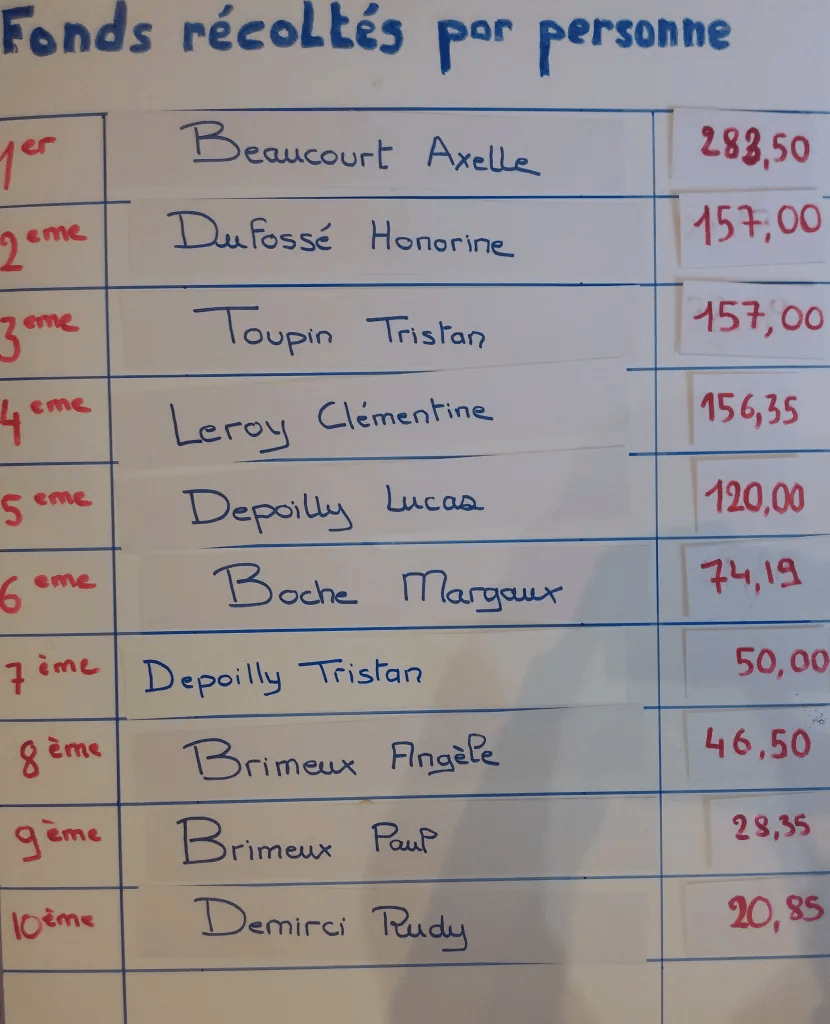 Fonds récoltés par personne
1er Beaucourt Axelle 283,50
2eme Dufossé Honorine 157,00
3eme Toupin Tristan 157,00
4eme Leroy Clémentine 156,35
5eme Depoilly Lucas 120,00
6eme Boche Margaux 74,19
7ème Depoilly Tristan 50,00
8ème Brimeux Angèle 46,50
9ème Brimeux Paul 28,35
10ème Demirci Rudy 20,85